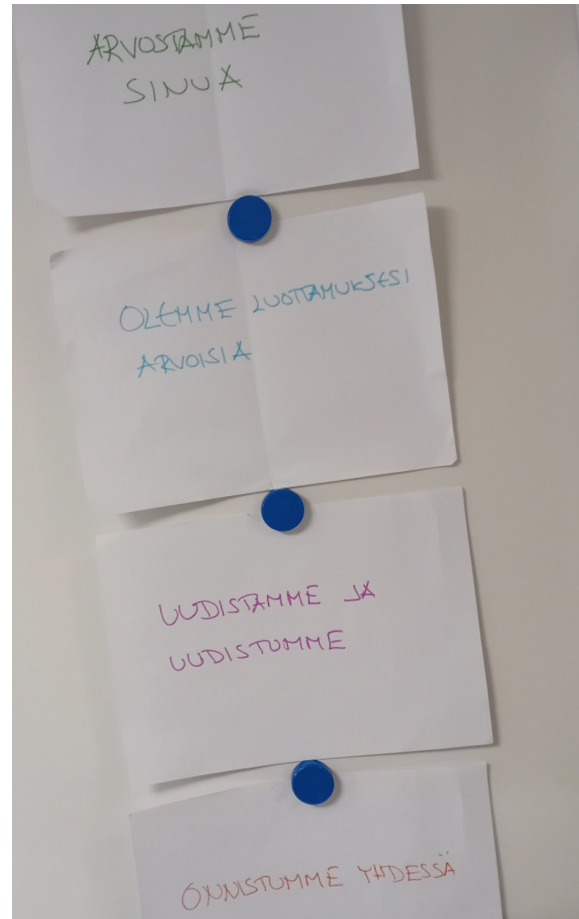 ARVOSTAMME
SINUA
OLEMME LUOTTAMUKSESI
ARVOISIA
UUDISTAMME JA
UUDISTUMME
ONNISTUMME YHDESSÄ